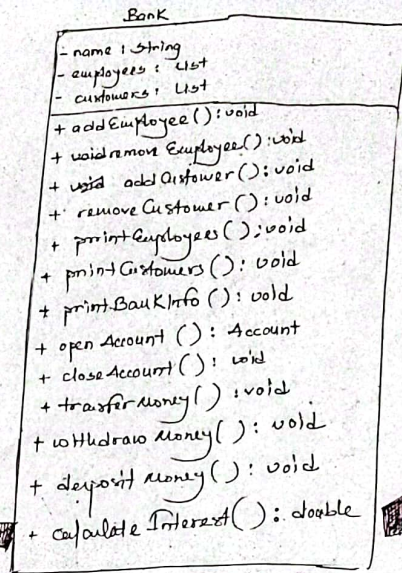 Bank
- name : string
- employees : List
- customers : List
+ addEmployee() : void
+ void remove Employee() : void
+ void addCustomer() : void
+ removeCustomer() : void
+ printEmployees() : void
+ printCustomers() : void
+ printBankInfo() : void
+ open Account () : Account
+ closeAccount() : void
+ transfer money() : void
+ withdraw Money() : void
+ deposit money() : void
+ calculate Interest() : double